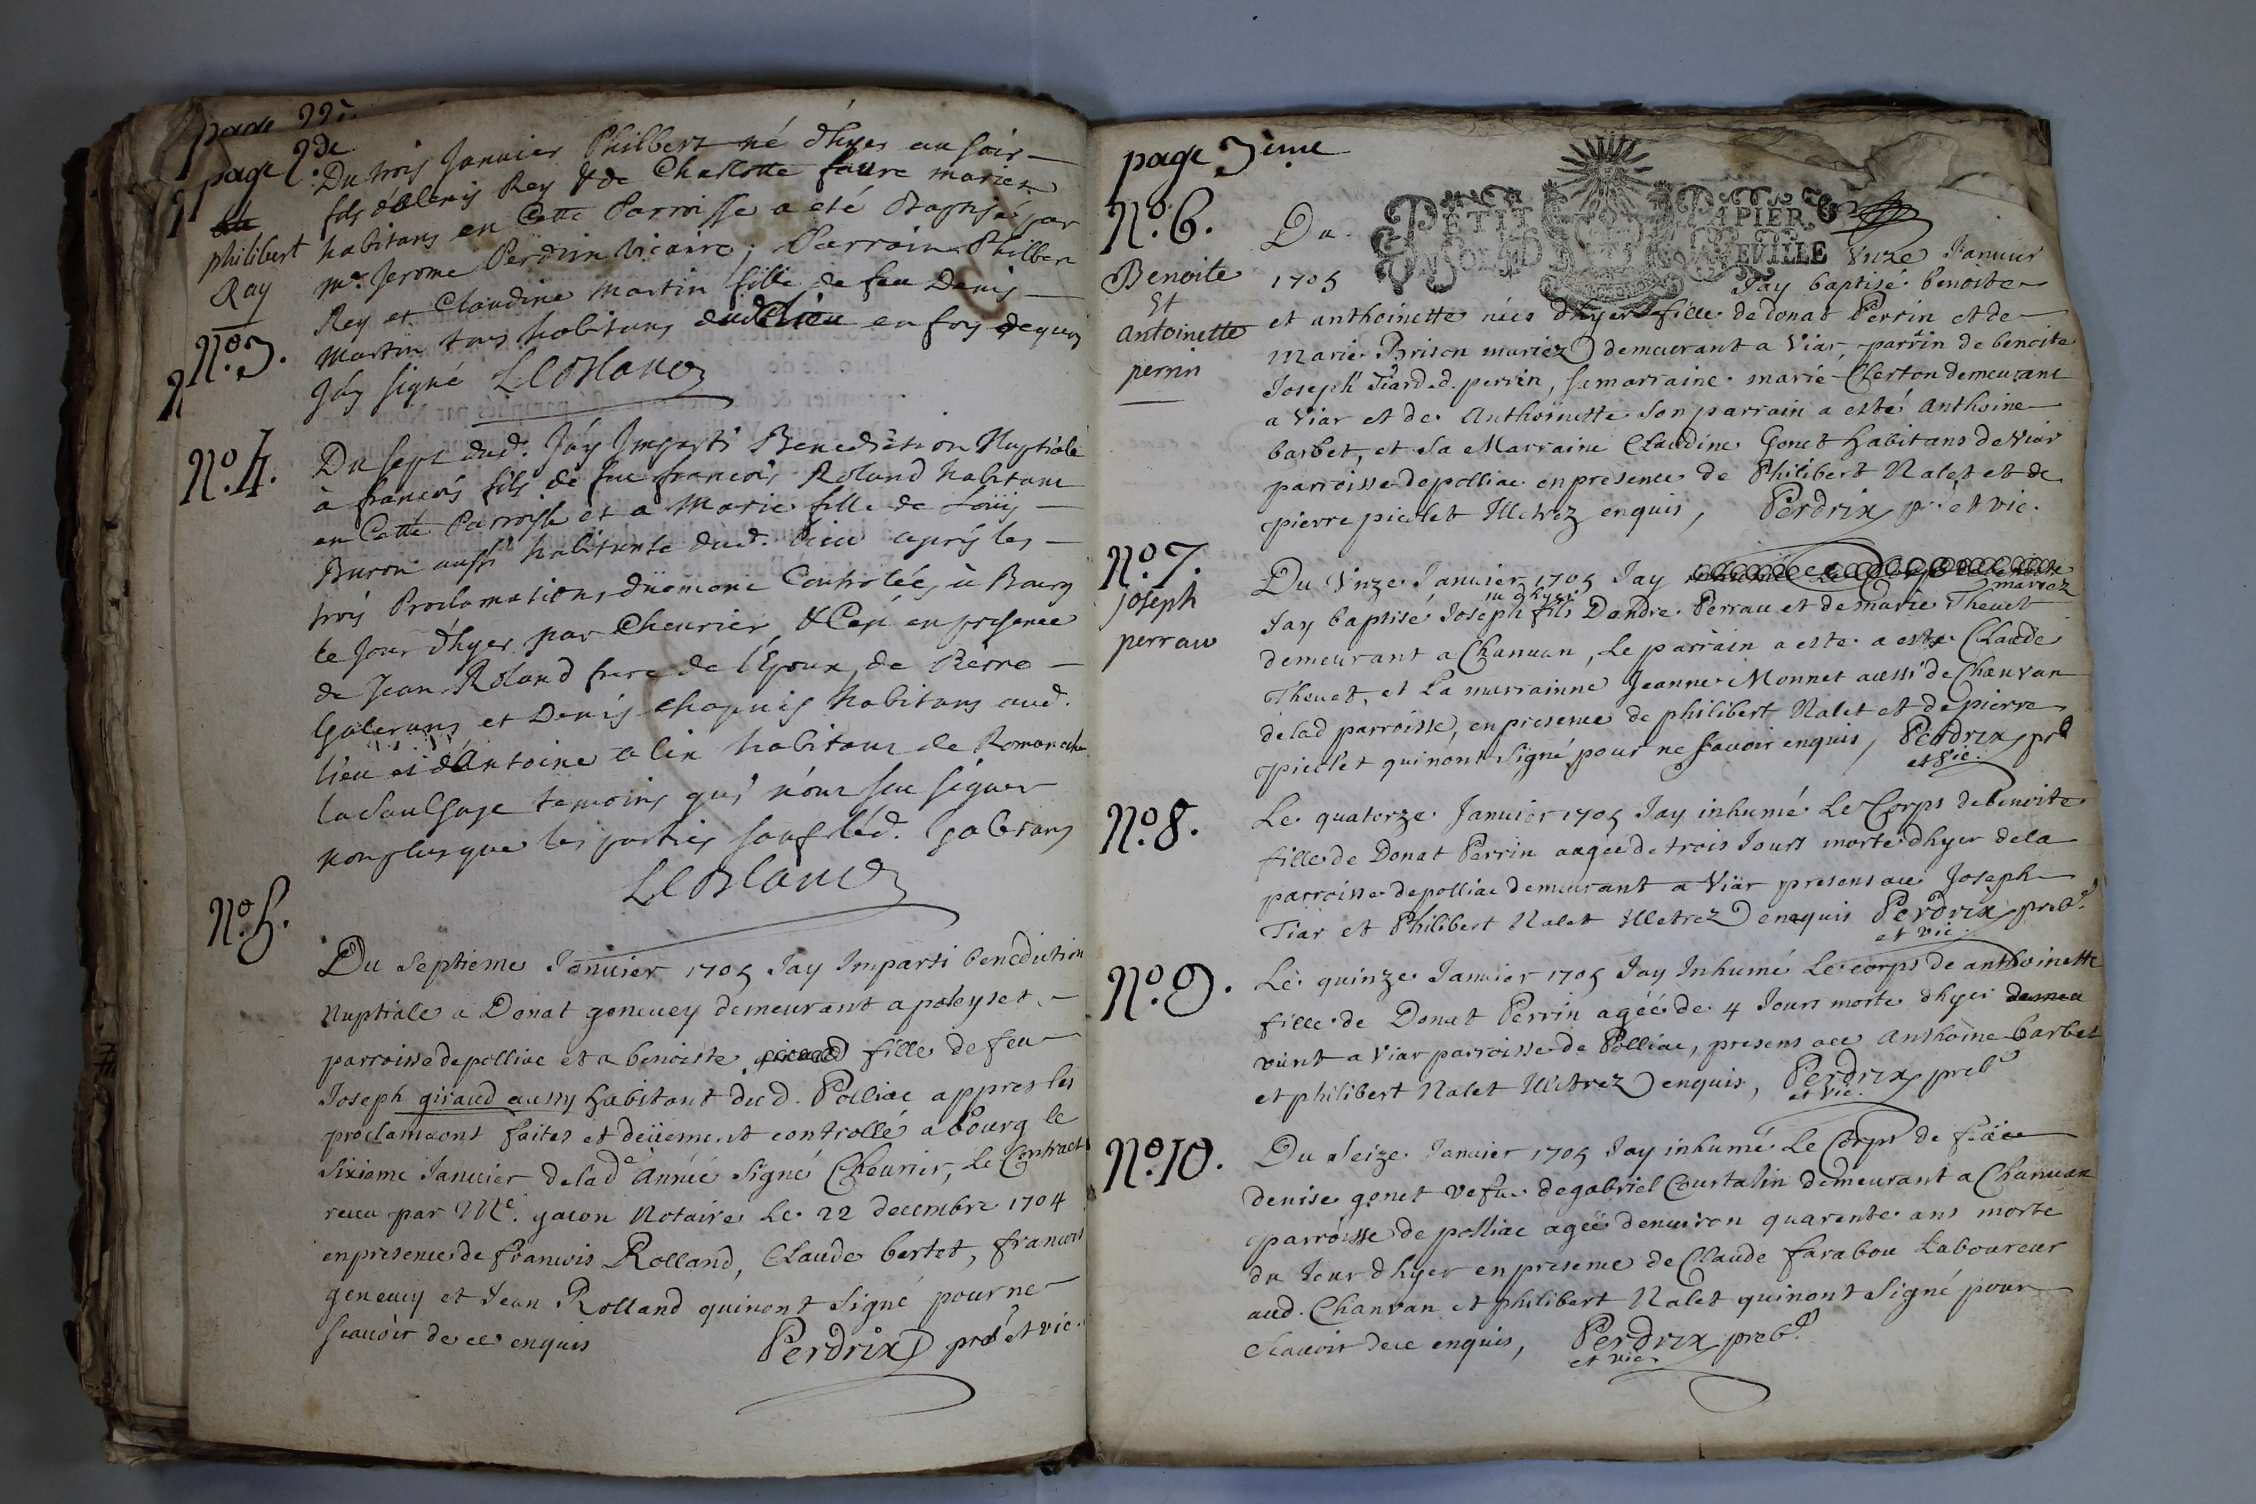 page 2de
Du trois Janvier Philbert né d'hyer au soir
fils d'Alexis Rey & de Charlotte faure mariez
philibert
Ray
habitans en Cette Parroisse a eté Baptisé par
mre Jerome Perdrix vicaire; Parrain Philbert
Rey et Claudine Martin fille de feu Denis
No. 3.
Martin tous habitans dud lieu en foy dequoy
J'ay signé LeBlanc
No. 4.
Du sept dud. J'ay Imparti Benediction Nuptiale
à francois fils de feu francois Roland habitant
en Cette Parroisse et a Marie fille de Loüis
Buron aussi habitante dud. lieu aprés les
trois Proclamations düement Controlées à Bourg
le Jour d'hyer par Cheurier & Cepi en presence
de Jean Roland frere de l'Epoux, de Pierre
Galerans et Denis Chapuis habitans aud.
lieu et d'Antoine alin habitant de Romaneche
la Saulsaye temoins qui n'ont sceu signer
non plus que les parties sauf led. Galerans
LeBlanc
No. 5.
Du Septieme Januier 1705 Jay Imparti benediction
Nuptiale a Donat geneuey demeurant a poleyset
parroisse de polliac et a benoiste fille de feu
Joseph giraud aussy habitant dud. Polliac appres les
proclamaons faites et deüement controllé a bourg le
Sixieme Januier de lade Année Signé Cheurier, Le Contract
receu par Me. gacon Notaire Le 22 decembre 1704
en presence de francois Rolland, Claude bertet, francois
geneuey et Jean Rolland qui nont Signé pour ne
scauoir de ce enquis Perdrix prb et vic.
page 3ème
PETIT PAPIER
No. 6.
Du Vnze Januier
Benoite
et
Antoinette
perrin
1705 Jay baptisé benoiste
et anthoinette nées dhyer fille de donat Perrin et de
Marie Brison mariez demeurant a Viar, parrin de benoite
Joseph Tiard d. perrin, sa marraine marie Clerton demeurant
a Viar et de Anthoinette son parrain a esté Anthoine
barbet, et sa Marraine Claudine Gonet habitans de Viar
parroisse de polliac en presence de Philibert Nalet et de
pierre picolet Illetrez enquis, Perdrix pr. et vic.
No. 7.
joseph
perrau
Du Vnze Januier 1705 Jay
Jay baptisé Joseph né dhyer fils Dandre Perrau et de marie Theuet mariez
demeurant a Chanuan, Le parrain a este a este Claude
Theuet, et La marrainne Jeanne Monnet aussi de Chanvan
de lad parroisse, en presence de philibert Nalet et de pierre
picolet qui nont Signé pour ne scauoir enquis, Perdrix prb
et vic.
No. 8.
Le quatorze Januier 1705 Jay inhumé Le Corps de benoite
fille de Donat Perrin aagée de trois Jours morte dhyer de la
parroisse de polliac demeurant a Viar presens au Joseph
Tiar et Philibert Nalet Illetrez enquis Perdrix preb.
et vic.
No. 9.
Le quinze Januier 1705 Jay Inhumé Le corps de anthoinette
fille de Donat Perrin agéé de 4 Jours morte dhyer demeu
rant a Viar parroisse de Polliac, presens au Anthoine barbet
et philibert Nalet Illetrez enquis, Perdrix preb
et vic.
No. 10.
Du Seize Januier 1705 Jay inhumé Le Corps de
denise gonet vefue de gabriel Courtalin demeurant a Chanuan
parroisse de polliac agée denuiron quarente ans morte
du Jour dhyer en presence de Claude farabou Laboureur
aud. Chanvan et philibert Nalet qui nont Signé pour
Scauoir de ce enquis, Perdrix preb.
et vic